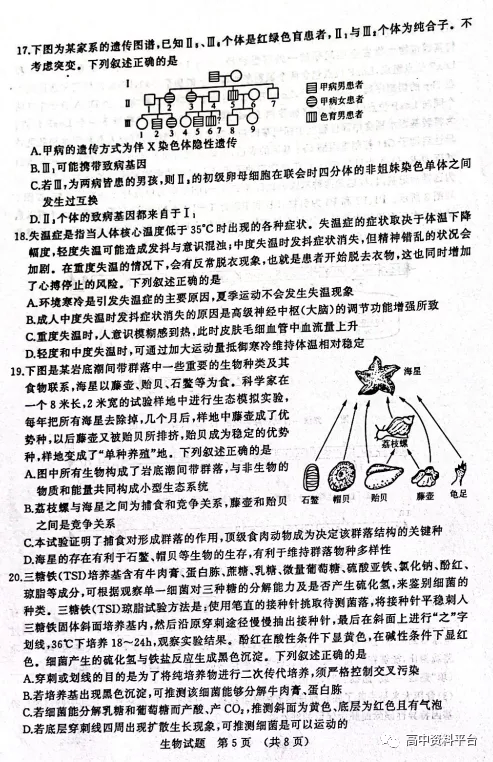 17.下图为某家系的遗传图谱,已知Ⅱ₅、Ⅲ₆个体是红绿色盲患者,Ⅱ₁与Ⅲ₂个体为纯合子。不
考虑突变。下列叙述正确的是
Ⅰ
Ⅱ
Ⅲ
1 2 3 4 5 6 7
1 2 3 4 5 6 7 8 9
甲病男患者
甲病女患者
色盲男患者
A.甲病的遗传方式为伴X染色体隐性遗传
B.Ⅲ₁可能携带致病基因
C.若Ⅲ₇为两病皆患的男孩,则Ⅱ₄的初级卵母细胞在联会时四分体的非姐妹染色单体之间
发生过互换
D.Ⅱ₄个体的致病基因都来自于Ⅰ₁
18.失温症是指当人体核心温度低于35℃时出现的各种症状。失温症的症状取决于体温下降
幅度,轻度失温可能造成发抖与意识混浊;中度失温时发抖症状消失,但精神错乱的状况会
加剧。在重度失温的情况下,会有反常脱衣现象,也就是患者开始脱去衣物,这也同时增加
了心搏停止的风险。下列叙述正确的是
A.环境寒冷是引发失温症的主要原因,夏季运动不会发生失温现象
B.成人中度失温时发抖症状消失的原因是高级神经中枢(大脑)的调节功能增强所致
C.重度失温时,人意识模糊感到热,此时皮肤毛细血管中血流量上升
D.轻度和中度失温时,可通过加大运动量抵御寒冷维持体温相对稳定
19.下图是某岩底潮间带群落中一些重要的生物种类及其
食物联系,海星以藤壶、贻贝、石鳖等为食。科学家在
一个8米长,2米宽的试验样地中进行生态模拟实验,
每年把所有海星去除掉,几个月后,样地中藤壶成了优
势种,以后藤壶又被贻贝所排挤,贻贝成为稳定的优势
种,样地变成了“单种养殖”地。下列叙述正确的是
海星
荔枝螺
石鳖 帽贝 贻贝 藤壶 龟足
A.图中所有生物构成了岩底潮间带群落,与非生物的
物质和能量共同构成小型生态系统
B.荔枝螺与海星之间为捕食和竞争关系,藤壶和贻贝
之间是竞争关系
C.本试验证明了捕食对形成群落的作用,顶级食肉动物成为决定该群落结构的关键种
D.海星的存在有利于石鳖、帽贝等生物的生存,有利于维持群落物种多样性
20.三糖铁(TSI)培养基含有牛肉膏、蛋白胨、蔗糖、乳糖、微量葡萄糖、硫酸亚铁、氯化钠、酚红、
琼脂等成分,可根据观察单一细菌对三种糖的分解能力及是否产生硫化氢,来鉴别细菌的
种类。三糖铁(TSI)琼脂试验方法是:使用笔直的接种针挑取待测菌落,将接种针平稳刺人
三糖铁固体斜面培养基内,然后沿原穿刺途径慢慢抽出接种针,最后在斜面上进行“之”字
划线,36℃下培养18~24h,观察实验结果。酚红在酸性条件下显黄色,在碱性条件下显红
色。细菌产生的硫化氢与铁盐反应生成黑色沉淀。下列叙述正确的是
A.穿刺或划线的目的是为了将纯培养物进行二次传代培养,须严格控制交叉污染
B.若培养基出现黑色沉淀,可推测该细菌能够分解牛肉膏、蛋白胨
C.若细菌能分解乳糖和葡萄糖而产酸、产CO₂,推测斜面为黄色、底层为红色且有气泡
D.若底层穿刺线四周出现扩散生长现象,可推测细菌是可以运动的
生物试题 第5页 (共8页)
高中资料平台